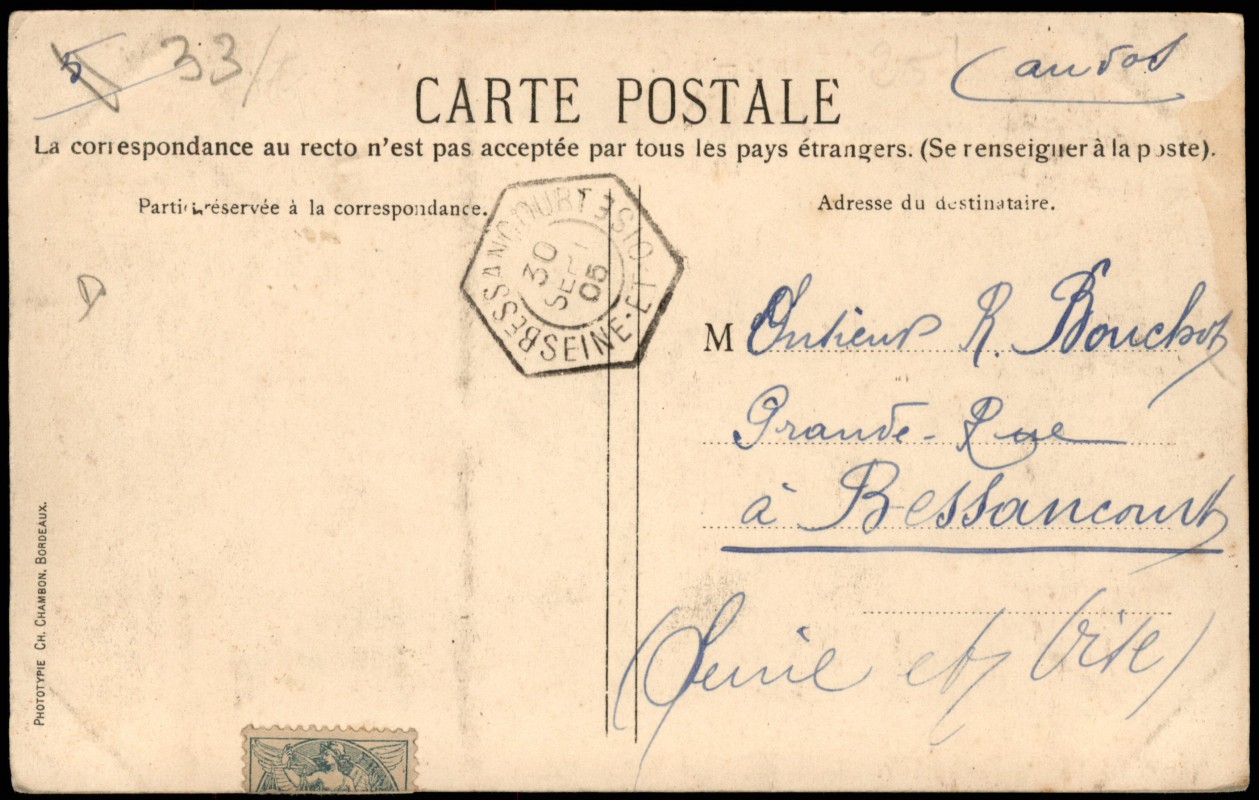 5 33/
Candos
CARTE POSTALE
La correspondance au recto n'est pas acceptée par tous les pays étrangers. (Se renseigner à la poste).
Partie réservée à la correspondance.
Adresse du destinataire.
BESSANCOURT
SEINE-ET-OISE
30
SEPT
05
Monsieur R. Bouchot
Grande-Rue
à Bessancourt
(Seine et Oise)
PHOTOTYPIE CH. CHAMBON, BORDEAUX.